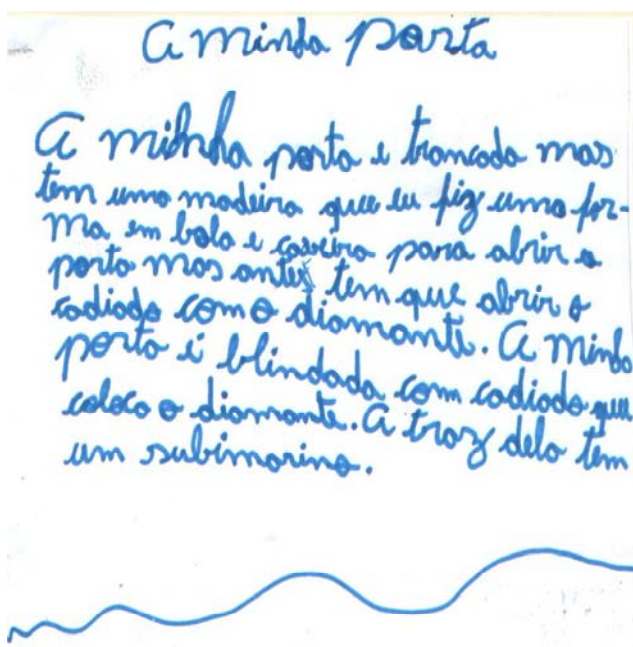 A minha porta
A minha porta e trancada mas
tem uma madeira que eu fiz uma for-
ma em bola e para abrir a
porta mas antes tem que abrir o
cadiado com o diamante. A minha
porta é blindada com cadiado que
coloco o diamante. A traz dela tem
um subimarino.